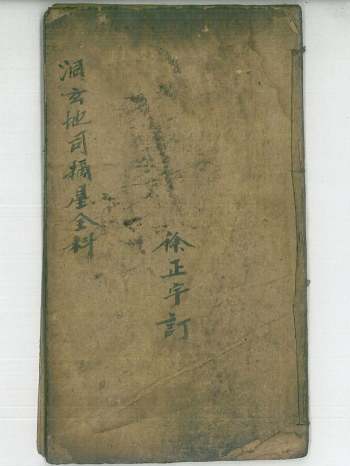 洞玄地司攝臺全科
徐正宇訂